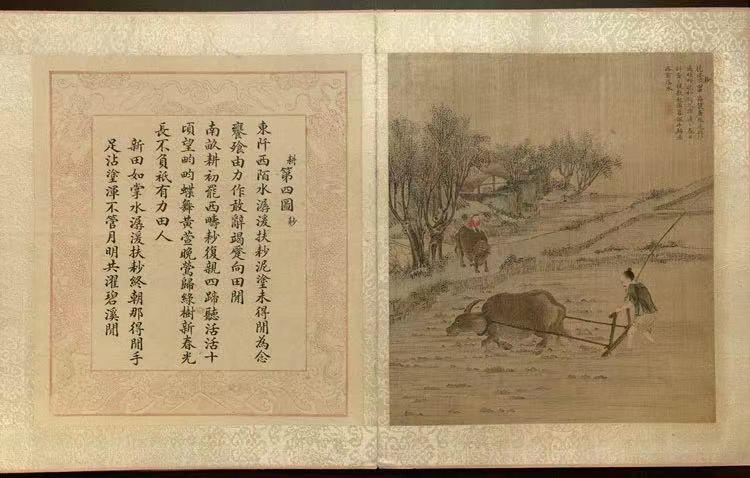 耕 第四圖 耖
東阡西陌水潺湲扶耖泥塗未得閒為念
饔飱由力作敢辭竭蹷向田間
南畝耕初罷西疇耖復親四蹄聽活活十
頃望畇畇蝶舞黃萱晚鶯歸綠樹新春光
長不負祇有力田人
新田如掌水潺湲扶耖終朝那得閒手
足沾塗渾不管月明共濯碧溪間
耖